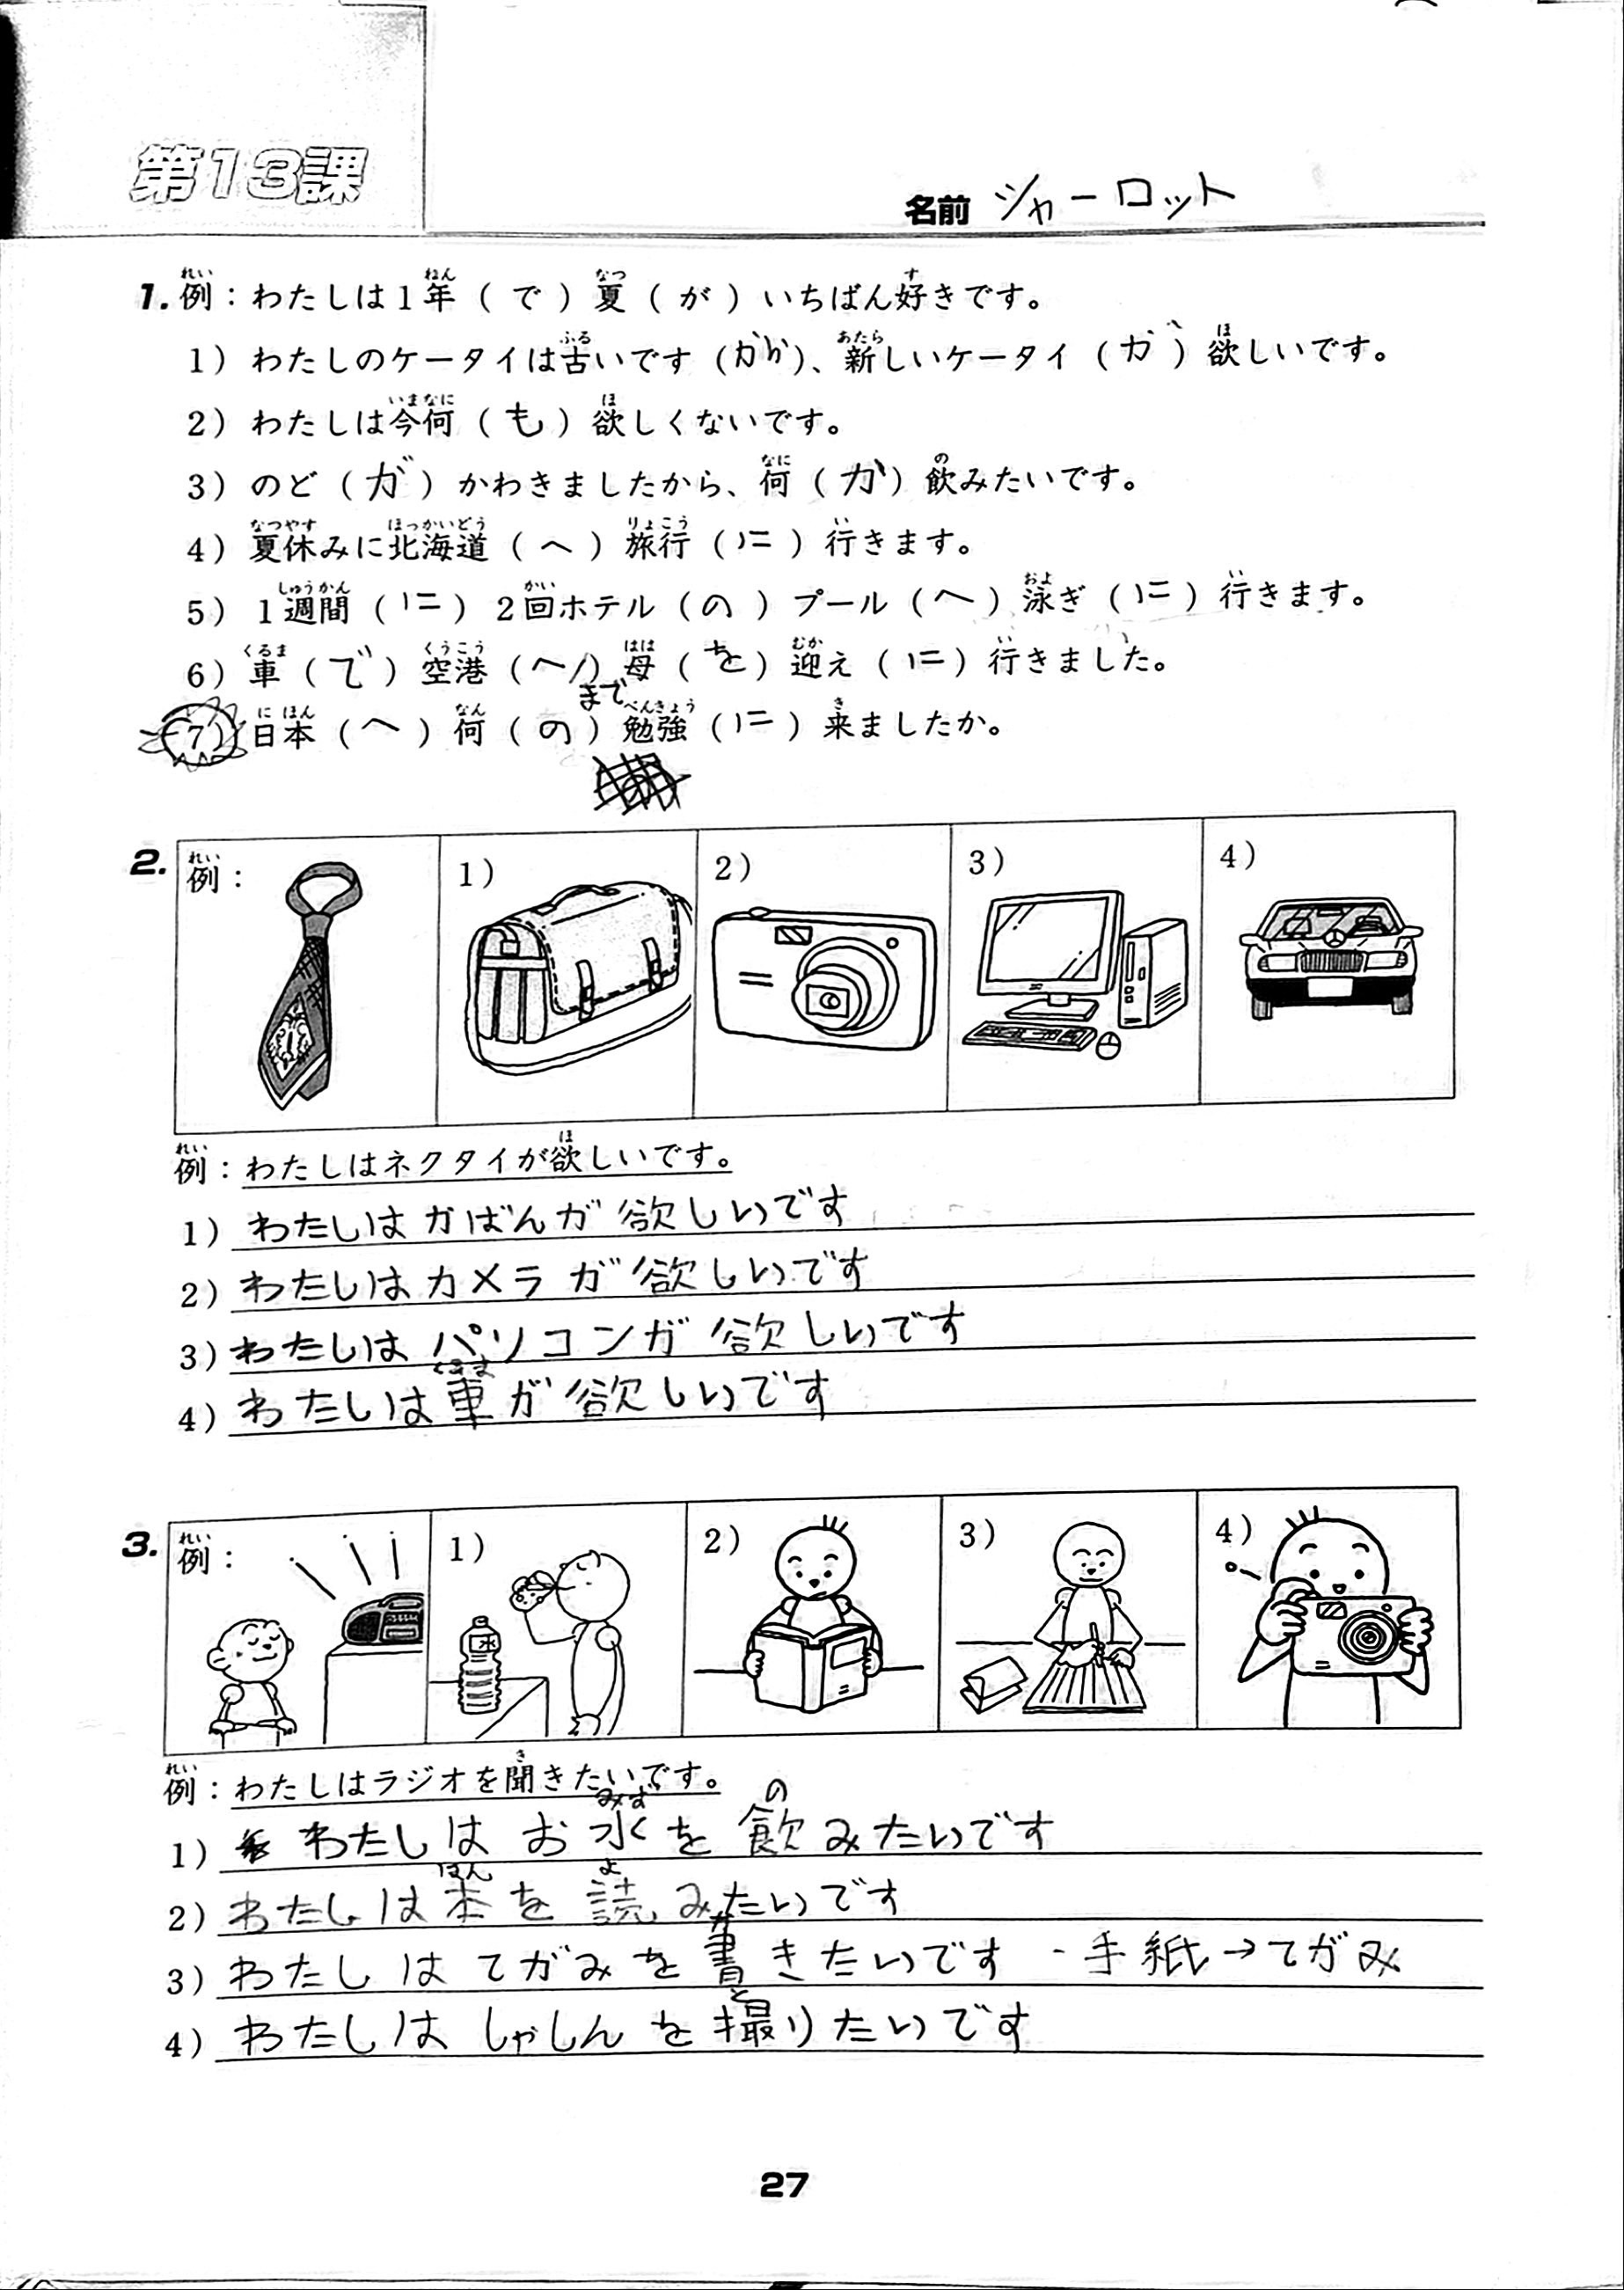 第13課
名前 シャーロット
1. 例：わたしは1年（で）夏（が）いちばん好きです。
1）わたしのケータイは古いです（から）、新しいケータイ（が）欲しいです。
2）わたしは今何（も）欲しくないです。
3）のど（が）かわきましたから、何（か）飲みたいです。
4）夏休みに北海道（へ）旅行（に）行きます。
5）1週間（に）2回ホテル（の）プール（へ）泳ぎ（に）行きます。
6）車（で）空港（へ/まで）母（を）迎え（に）行きました。
7）日本（へ）何（の）勉強（に）来ましたか。
2. 例：
1）
2）
3）
4）
例：わたしはネクタイが欲しいです。
1）わたしはかばんが欲しいです
2）わたしはカメラが欲しいです
3）わたしはパソコンが欲しいです
4）わたしは車が欲しいです
3. 例：
1）
水
2）
3）
4）
例：わたしはラジオを聞きたいです。
1）わたしはお水を飲みたいです
2）わたしは本を読みたいです
3）わたしはてがみを書きたいです - 手紙→てがみ
4）わたしはしゃしんを撮りたいです
27